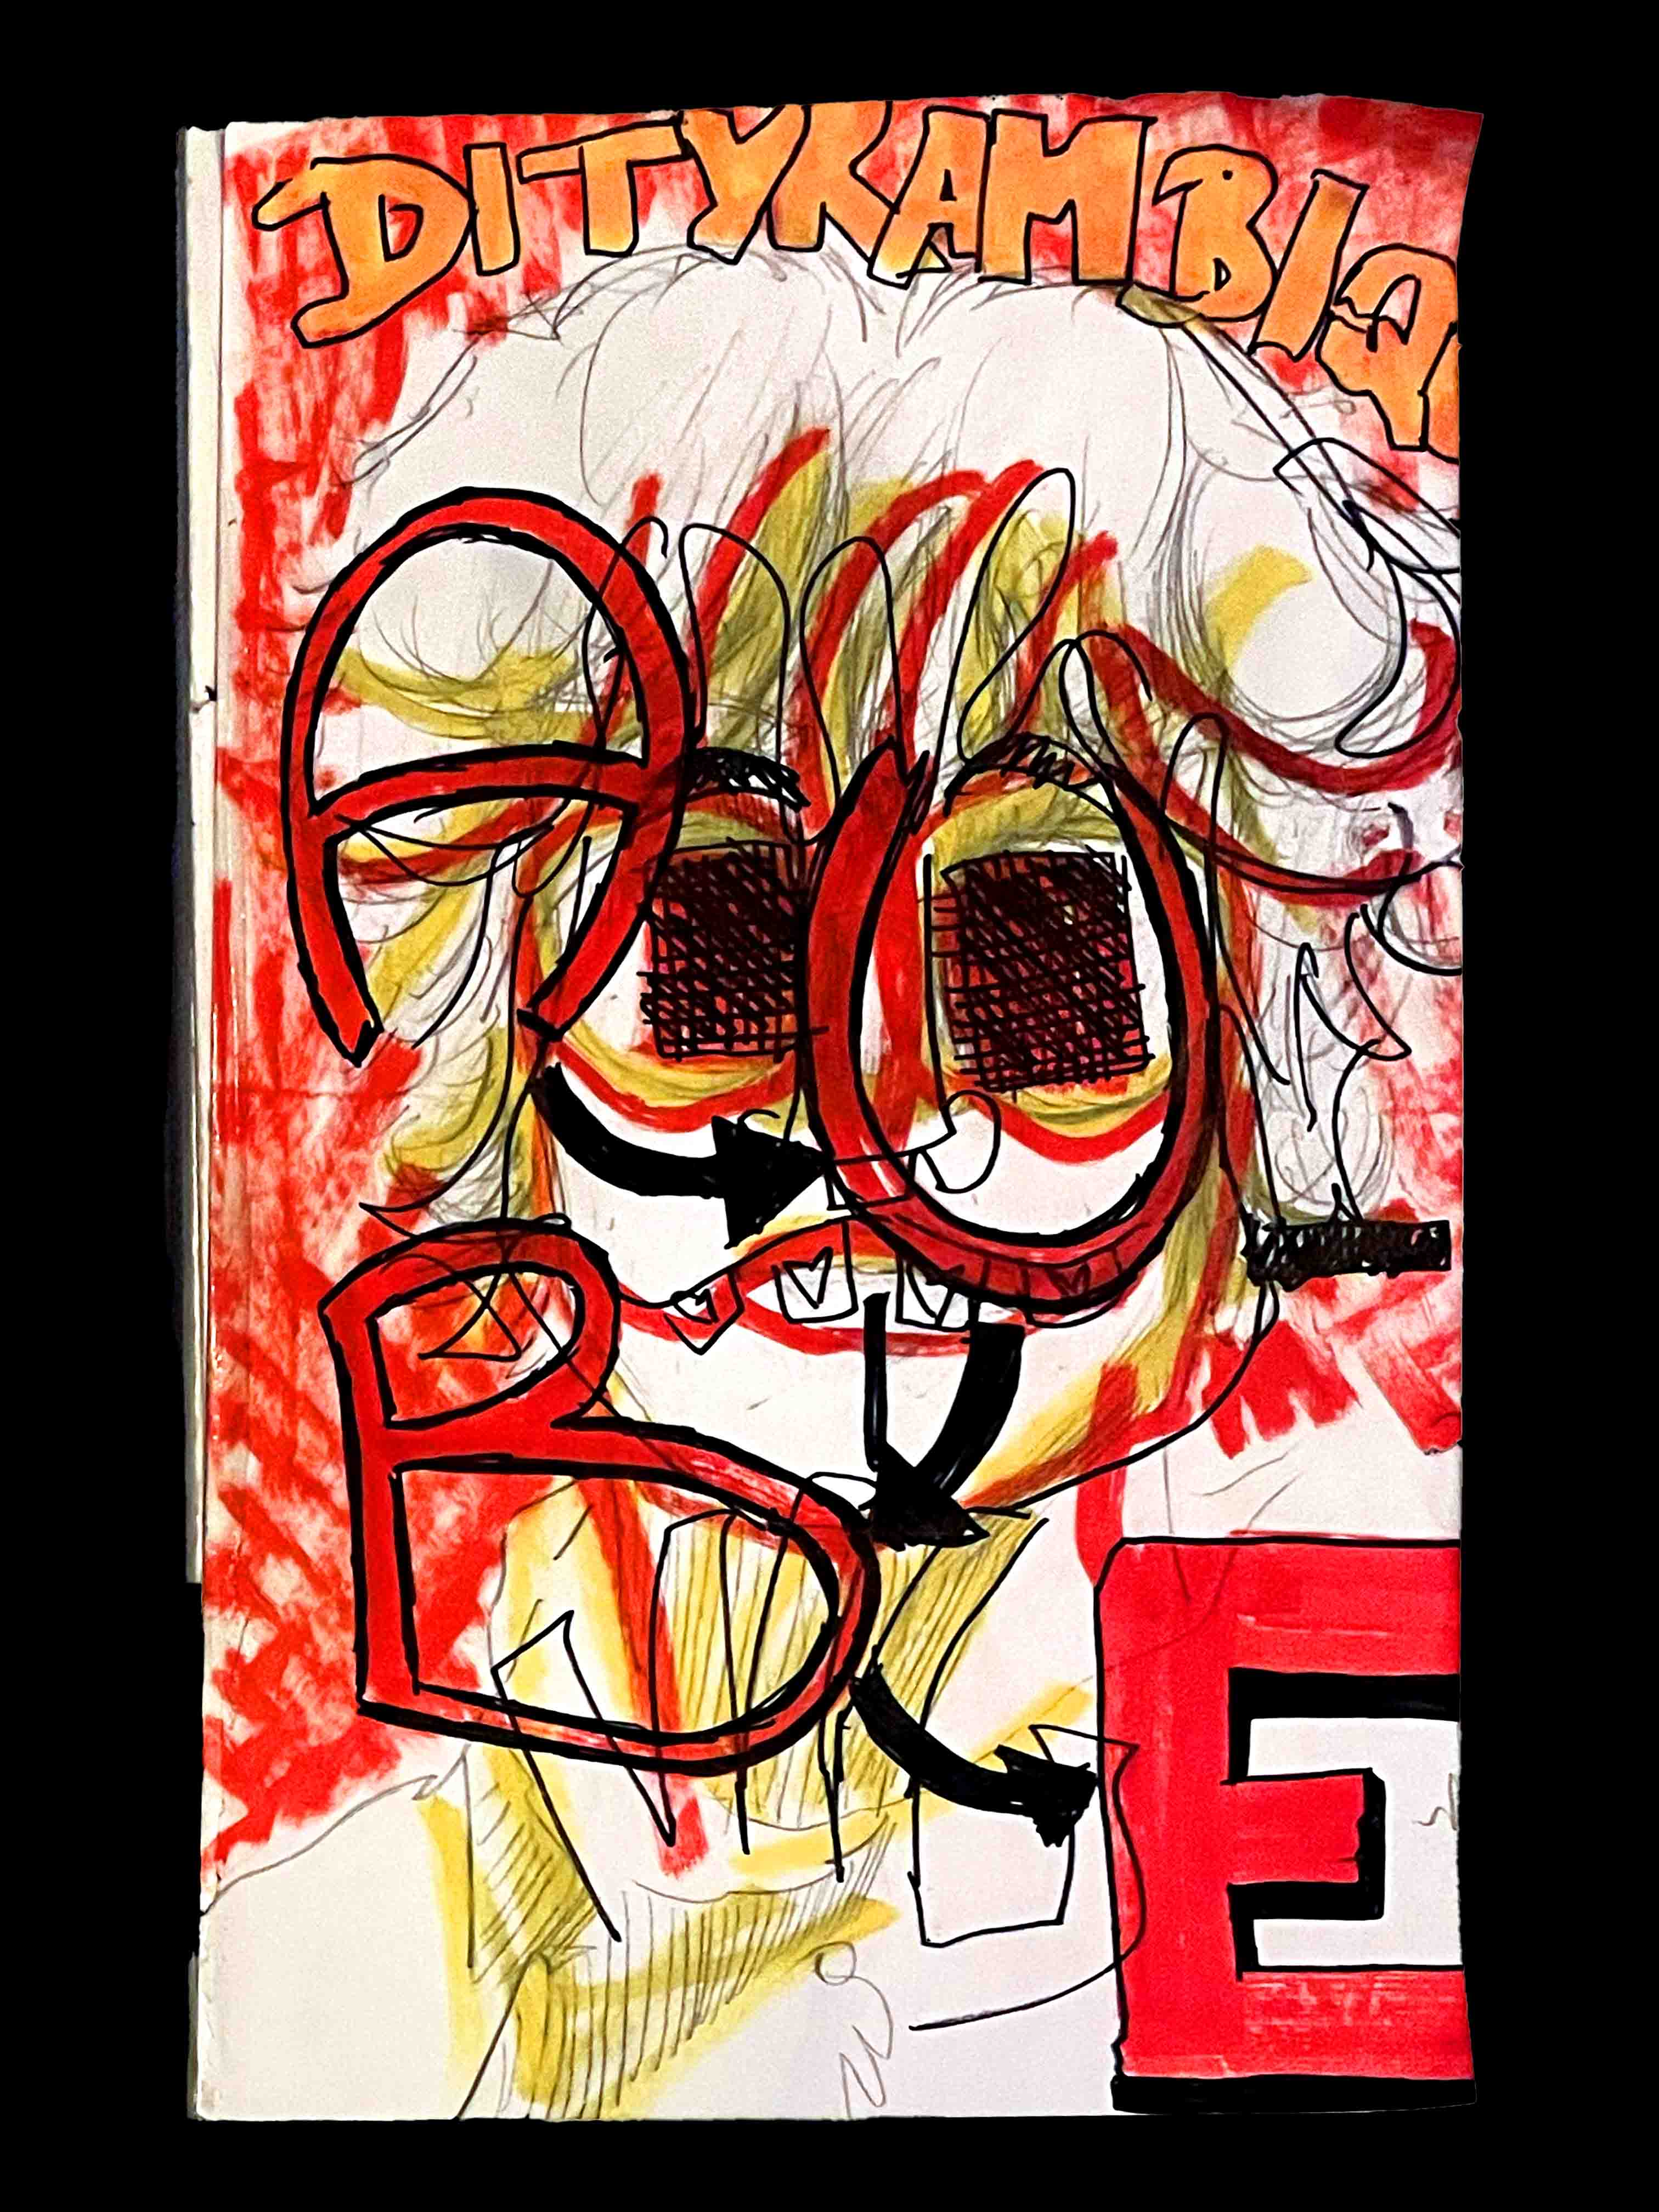 DITYRAMBIQ
A U
B
E